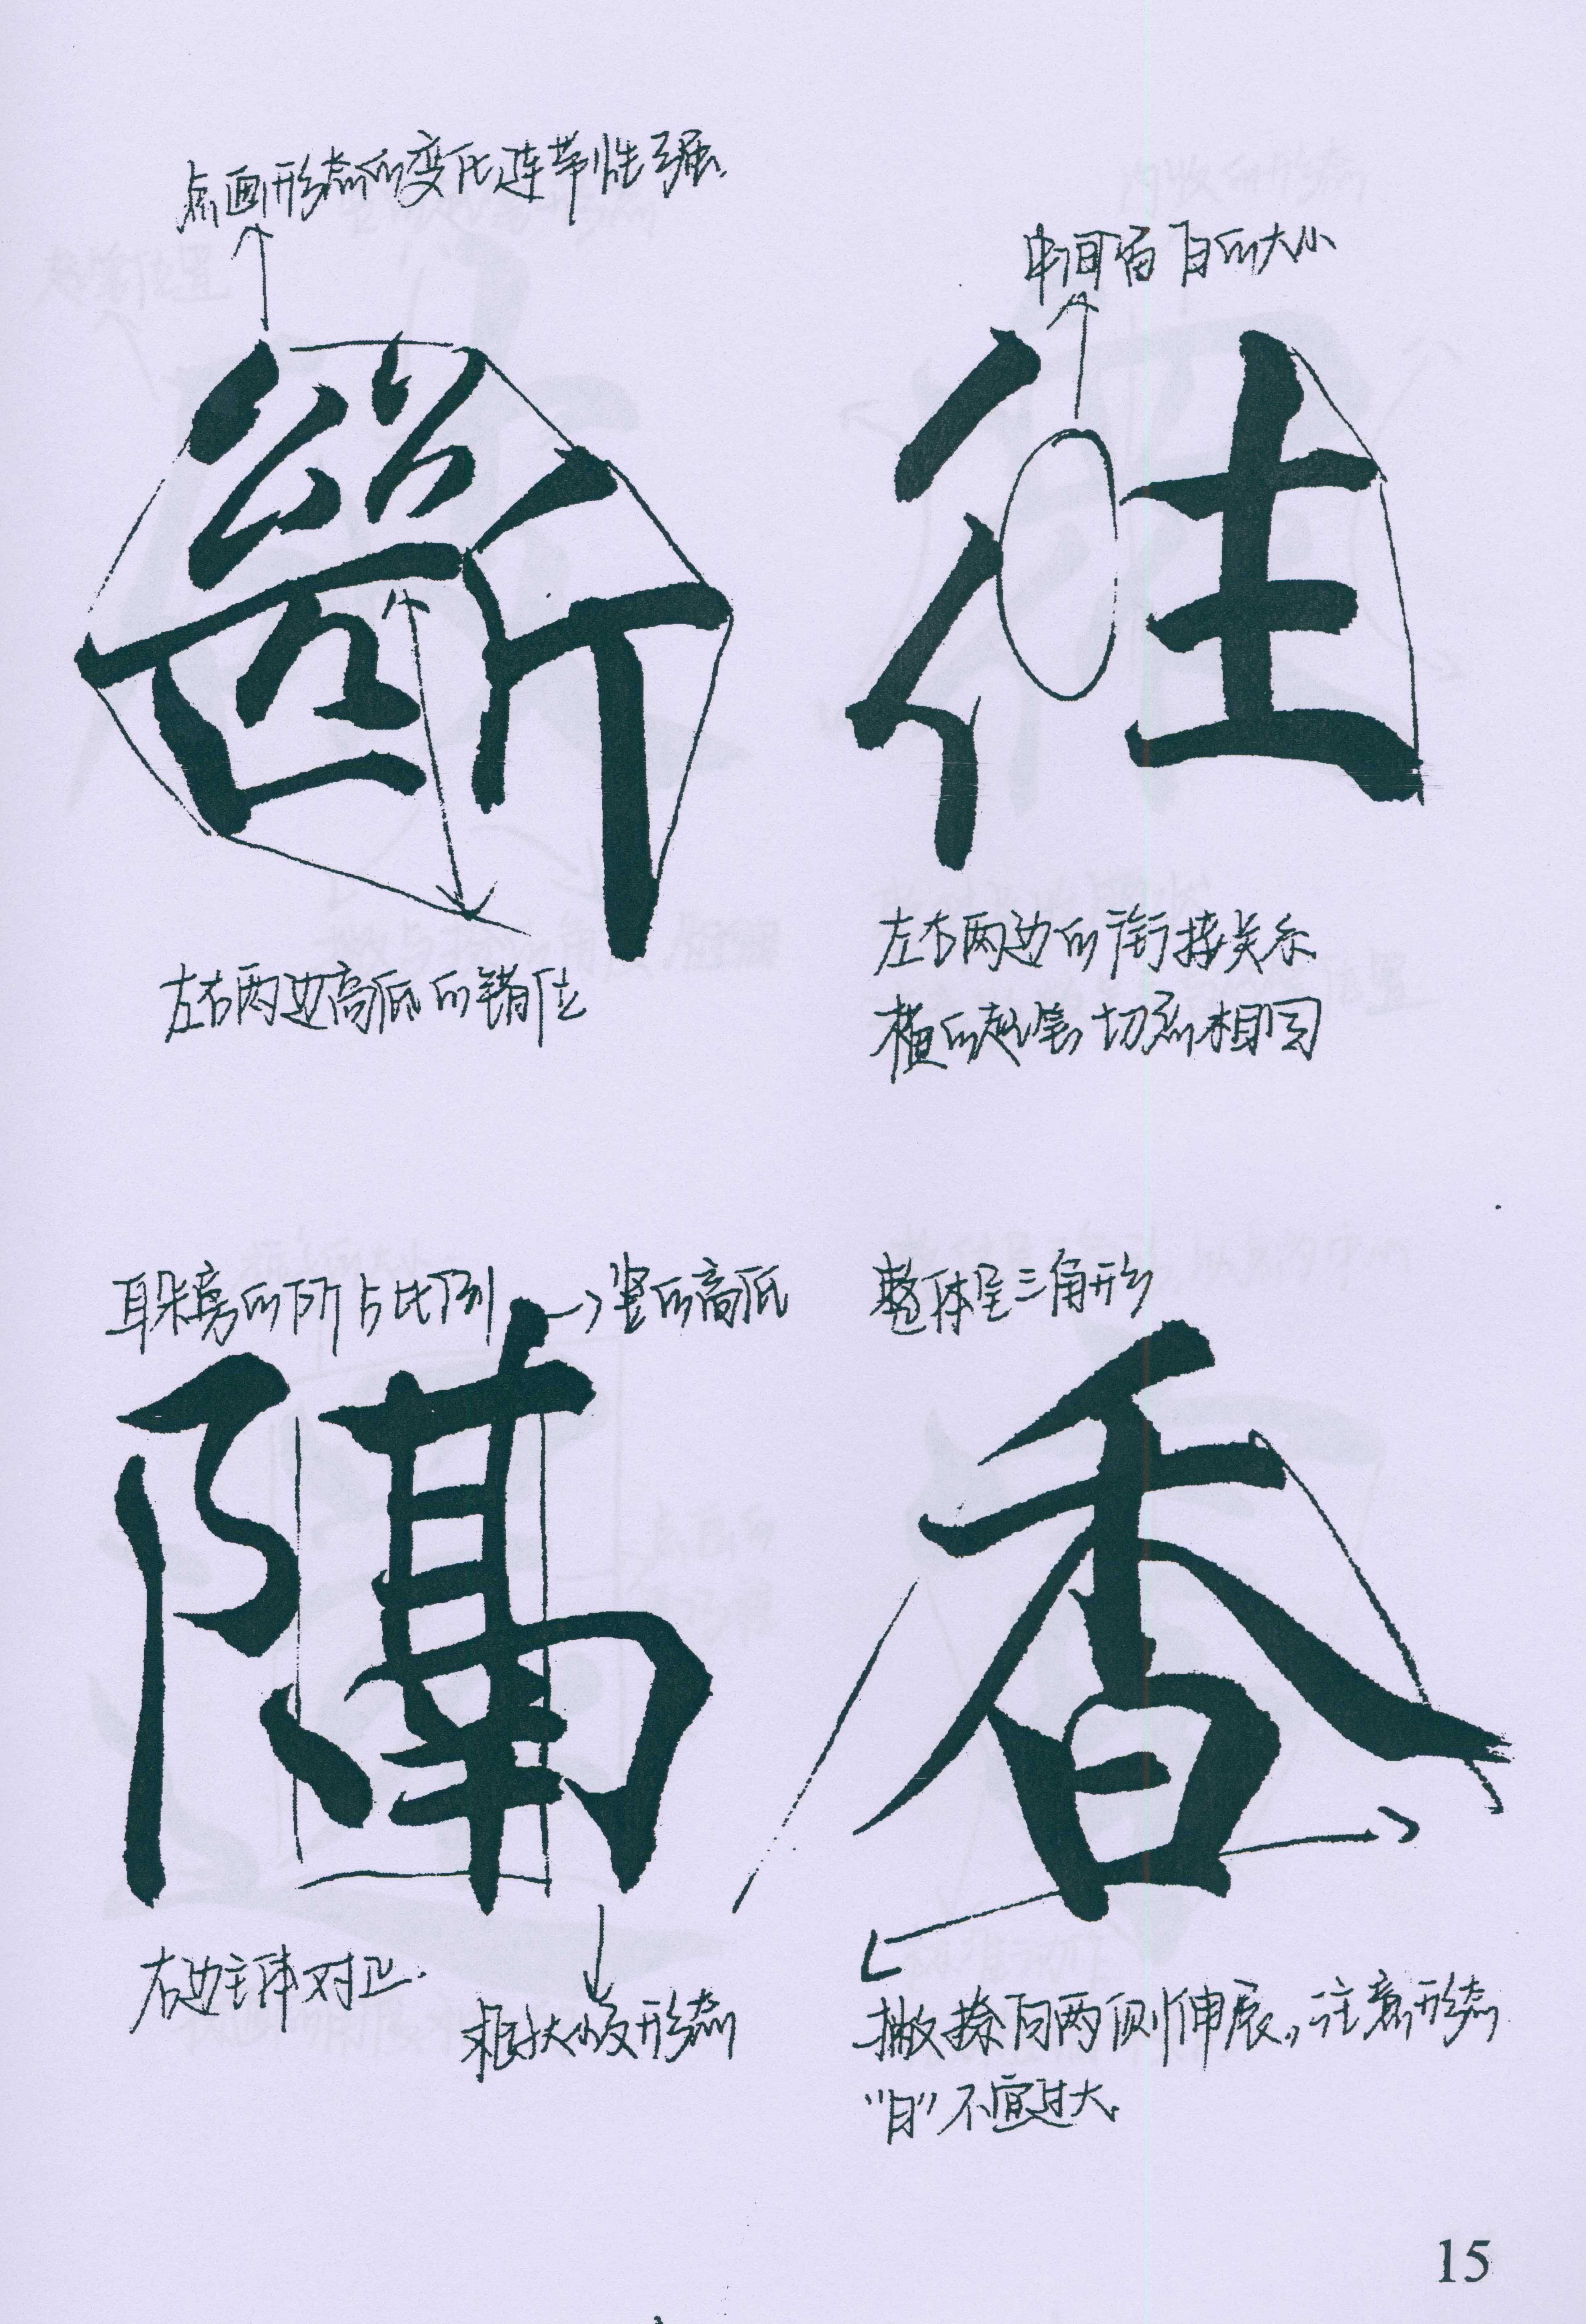 点画形态的变化连带性强.
中间留白的大小
斷
往
左右两边高低的错位
左右两边的衔接关系
横的起笔切系相同
耳朵旁的所占比例
→竖的高低
整体呈三角形
隔
香
右边主体对正.
粗技以及形态
撇捺向两侧伸展,注意形态
"日"不宜过大.
15